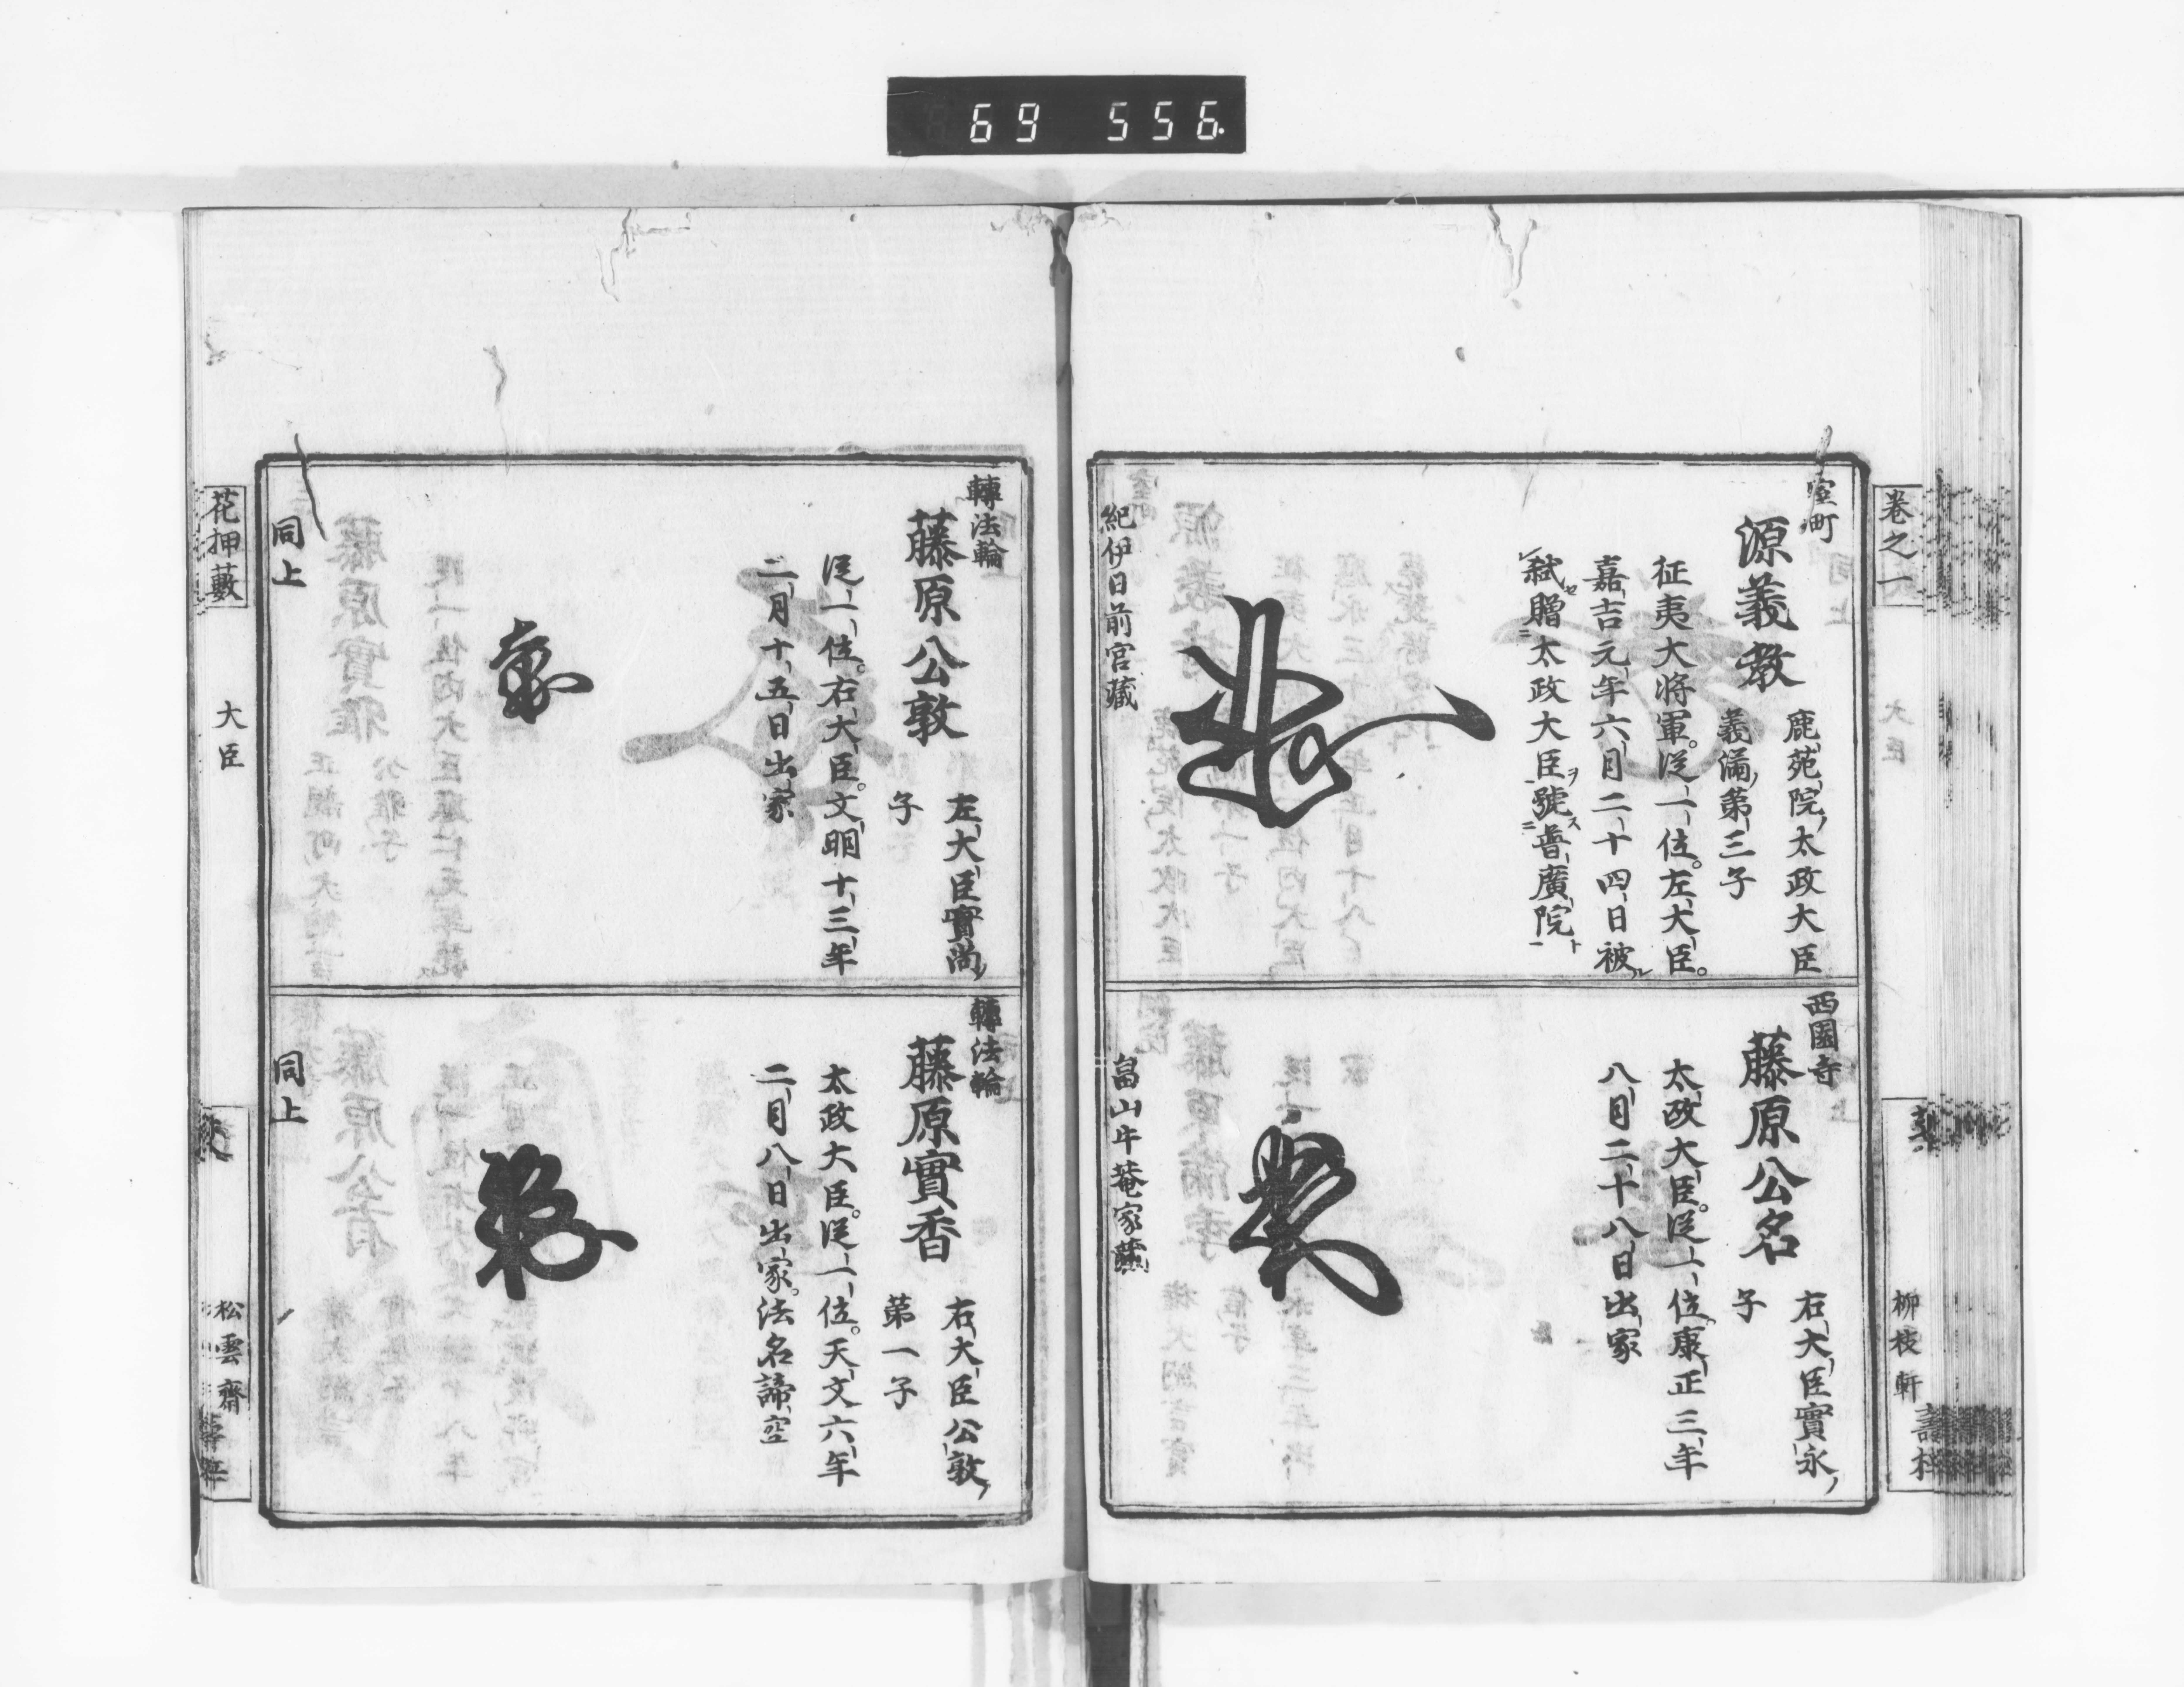 69 556.
卷之一
大臣
柳枝軒
壽梓
室町
源義教
鹿苑院太政大臣
義滿第三子
征夷大將軍。從一位。左大臣。
嘉吉元年六月二十四日被
弑贈太政大臣號普廣院
紀伊日前宮藏
西園寺
藤原公名
右大臣實永
子
太政大臣。從一位。康正三年
八月二十八日出家
畠山牛菴家藏
轉法輪
藤原公敦
左大臣實尚
子
從一位。右大臣。文明十三年
二月十五日出家
同上
轉法輪
藤原實香
右大臣公敦
第一子
太政大臣。從一位。天文六年
二月八日出家。法名諦空
同上
花押藪
大臣
松雲齋